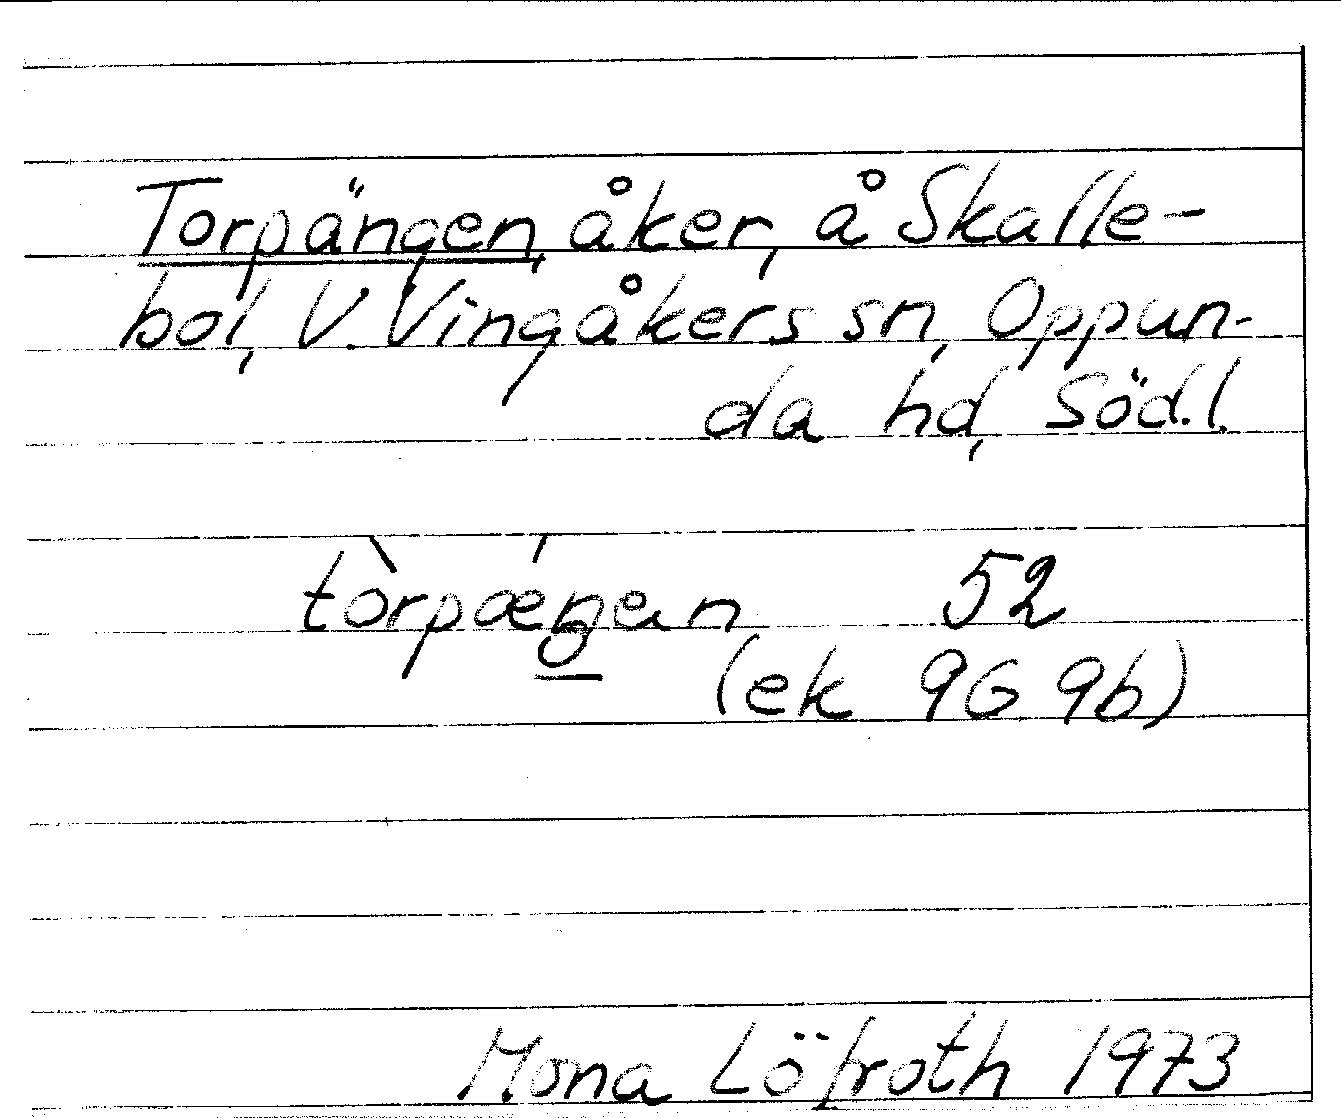 Torpängen, åker, å Skalle-
bol, V. Vingåkers sn, Oppun-
da hd, Söd.l.
tòrpæ´ŋan 52
(ek 9G 9b)
Mona Löfroth 1973